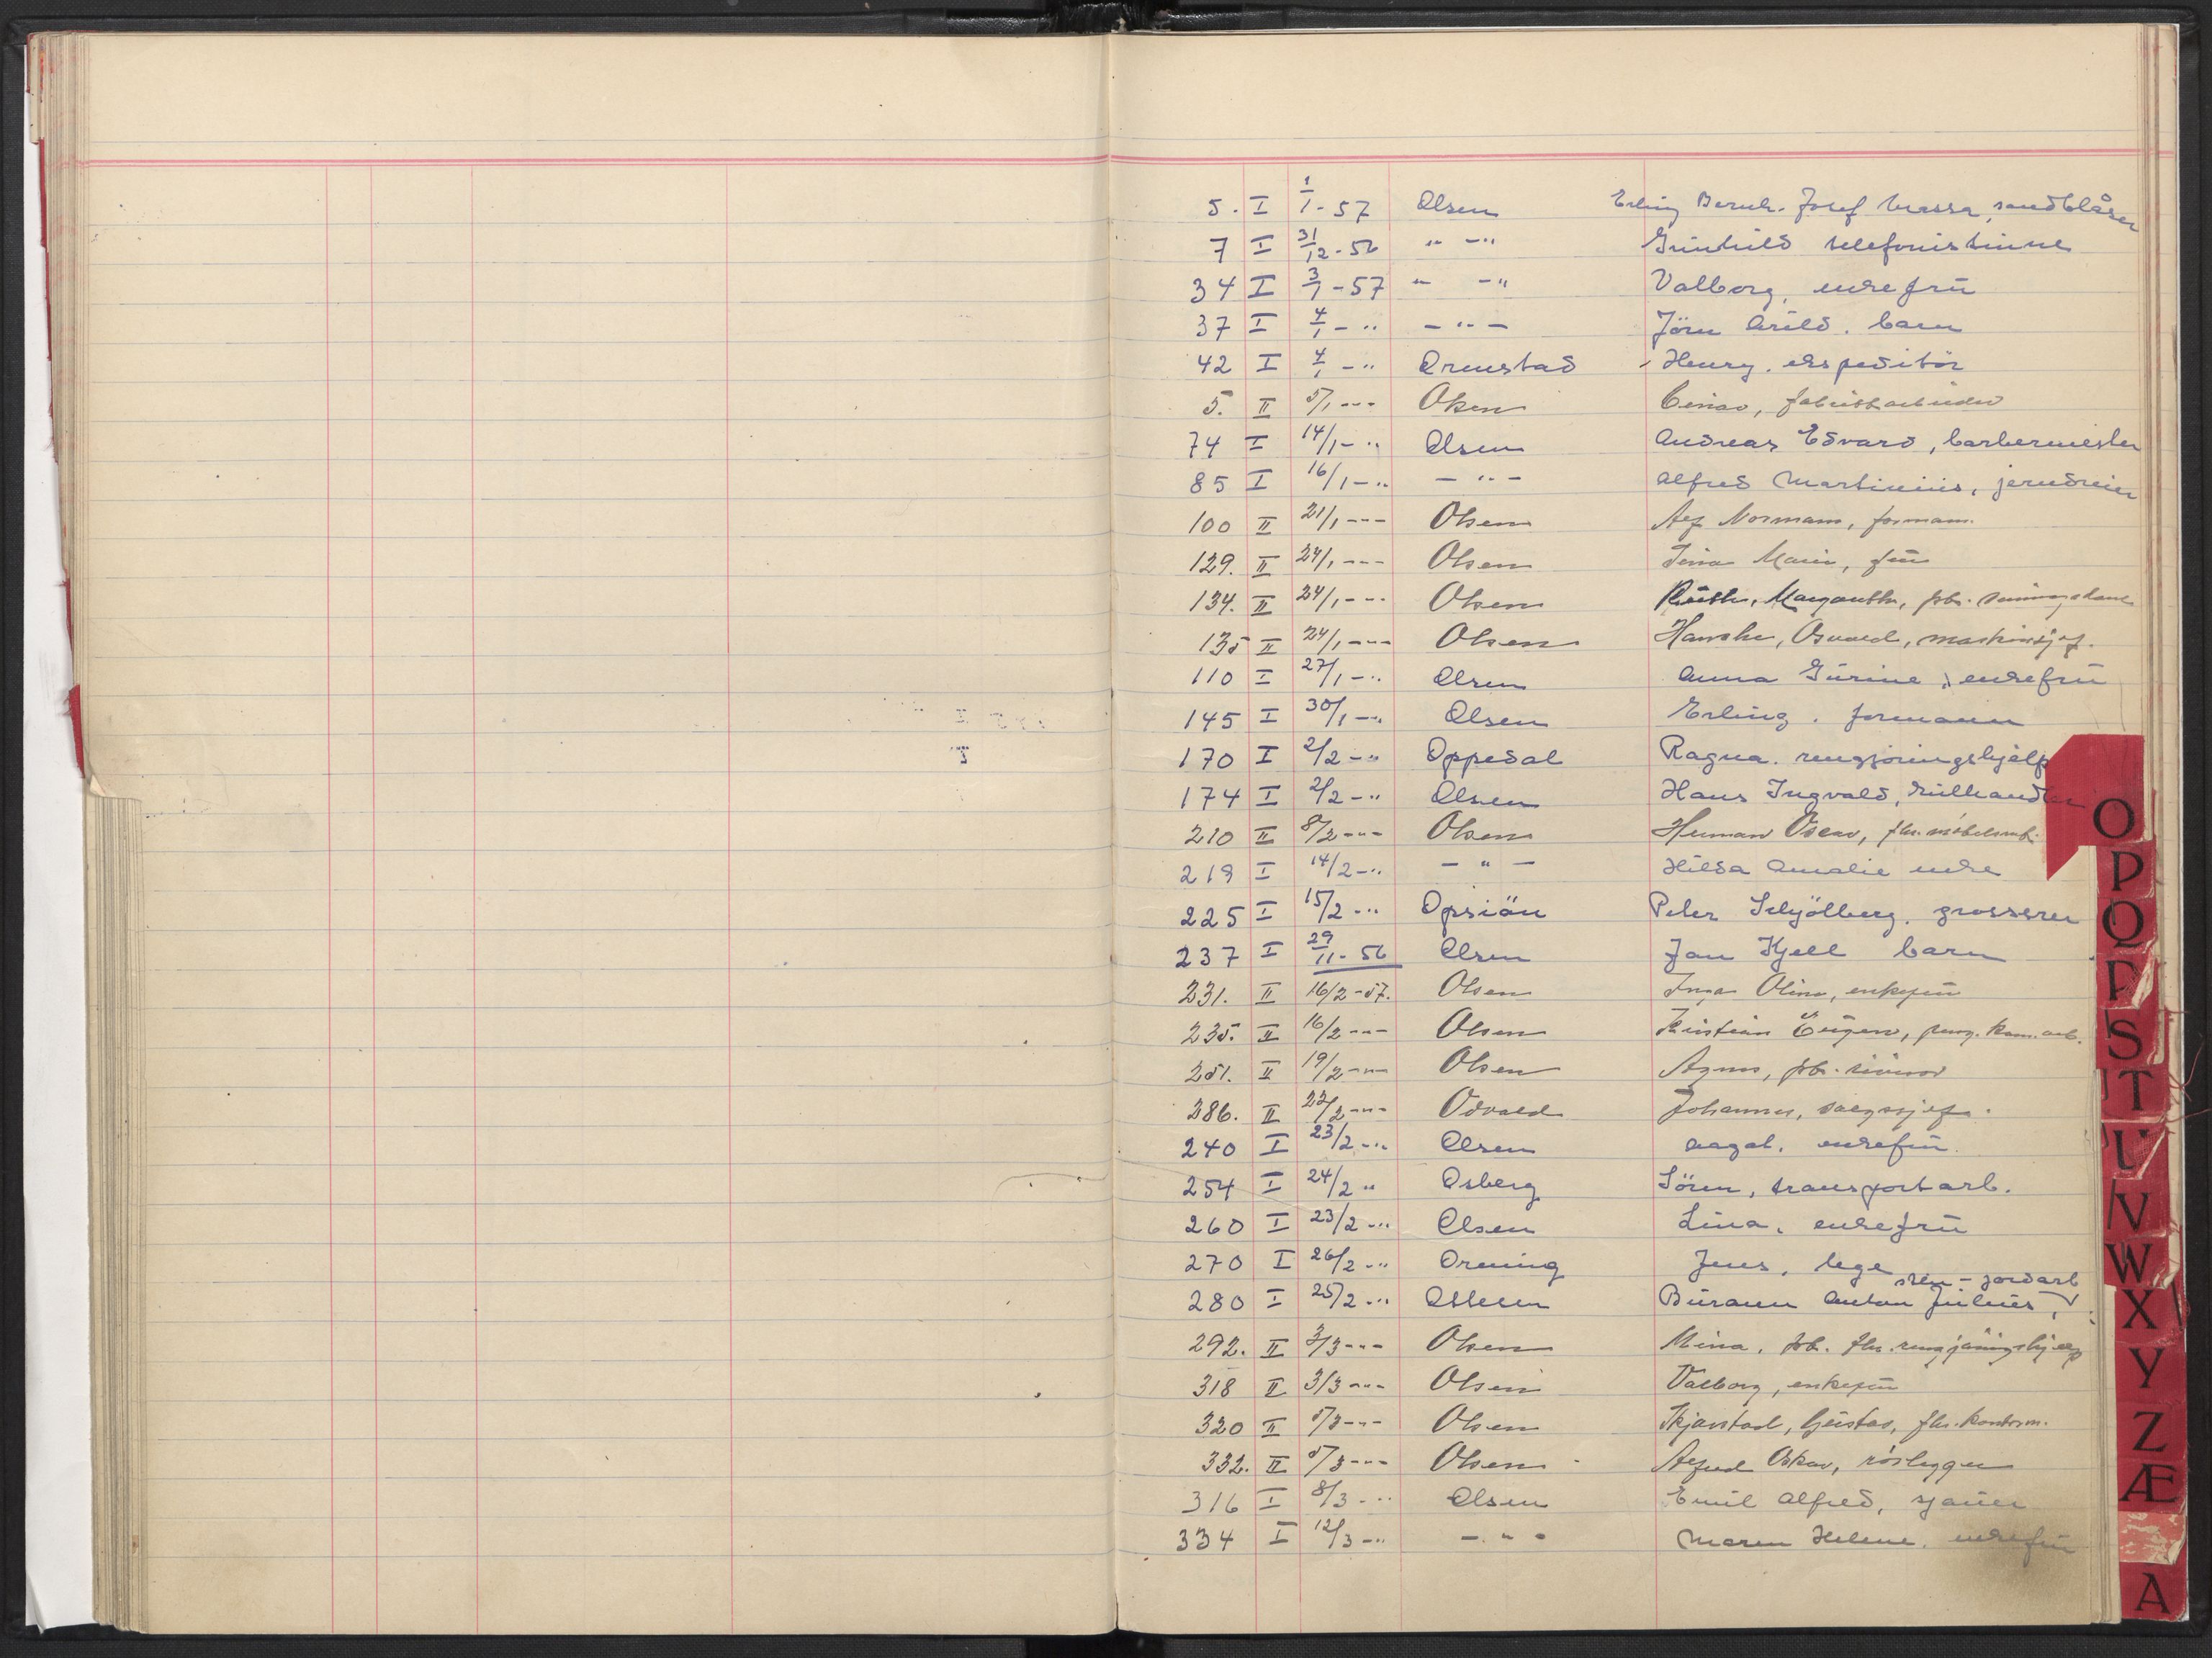 5. I 1/1-57 Olsen Erling Bernh. Josef Massa, sandblåser
7 I 31/12-56 " -" Gunhild telefonistinne
34 I 3/1-57 " -" Valborg, enkefru
37 I 4/1-" -"- Jörn Arild. barn
42 I 4/1-" Ormstad Henry. ekspeditör
5. II 5/1-"- Olsen Einar, fabrikkarbeider
74 I 14/1-" Olsen Andreas Edvard, barbermester
85 I 16/1-" -"- Alfred Martinius, jerndreier
100 II 21/1-"- Olsen Alf Normann, formann.
129. II 24/1-"- Olsen Marie, frü
134. II 24/1-"- Olsen Margarethe, frk.
135 II 24/1-"- Olsen Osvald, maskinsjef.
110 I 27/1-" Olsen Anna Gurine, enkefru
145 I 30/1-" Olsen Erling. formann
170 I 2/2-" Oppedal Ragna. rengjöringshjelp
174 I 2/2-" Olsen Hans Ingvald, kullhandler
210 II 8/2-"- Olsen Herman Oscar, fhv. möbelsnk.
219 I 14/2-" -"- Hilda Amalie enke
225 I 15/2-" Opsiön Peter Schjölberg. grosserer
237 I 29/11-56 Olsen Jan Kjell barn
231. II 16/2-57. Olsen Inga Oline, enkefrü
235. II 16/2-"- Olsen Kristian Eugen, kom.arb.
251. II 19/2-"- Olsen Agnes, frk.
286. II 22/2-"- Odvald Johannes, salgssjef.
240 I 23/2-" Olsen Aagot. enkefru.
254 I 24/2 " Osberg Sören, transportarb.
260 I 23/2-" Olsen Lina. enkefru
270 I 26/2-" Orning Jens. lege
280 I 25/2-" Ottesen Burann Anton Julius, sten-jordarb
292. II 2/3-"- Olsen Mina. frk. fhv. rengjöringshjelp
318 II 3/3-"- Olsen Valborg, enkefrü
320 II 5/3-"- Olsen Kjarstad, Gustav, fhv. kontorm.
332. II 5/3-"- Olsen Alfred Oskar, rörlegger
316 I 8/3-" Olsen Emil Alfred, sjauer
334 I 12/3-" -"- Maren Helene. enkefru
O
P
Q
R
S
T
U
V
W
X
Y
Z
Æ
A